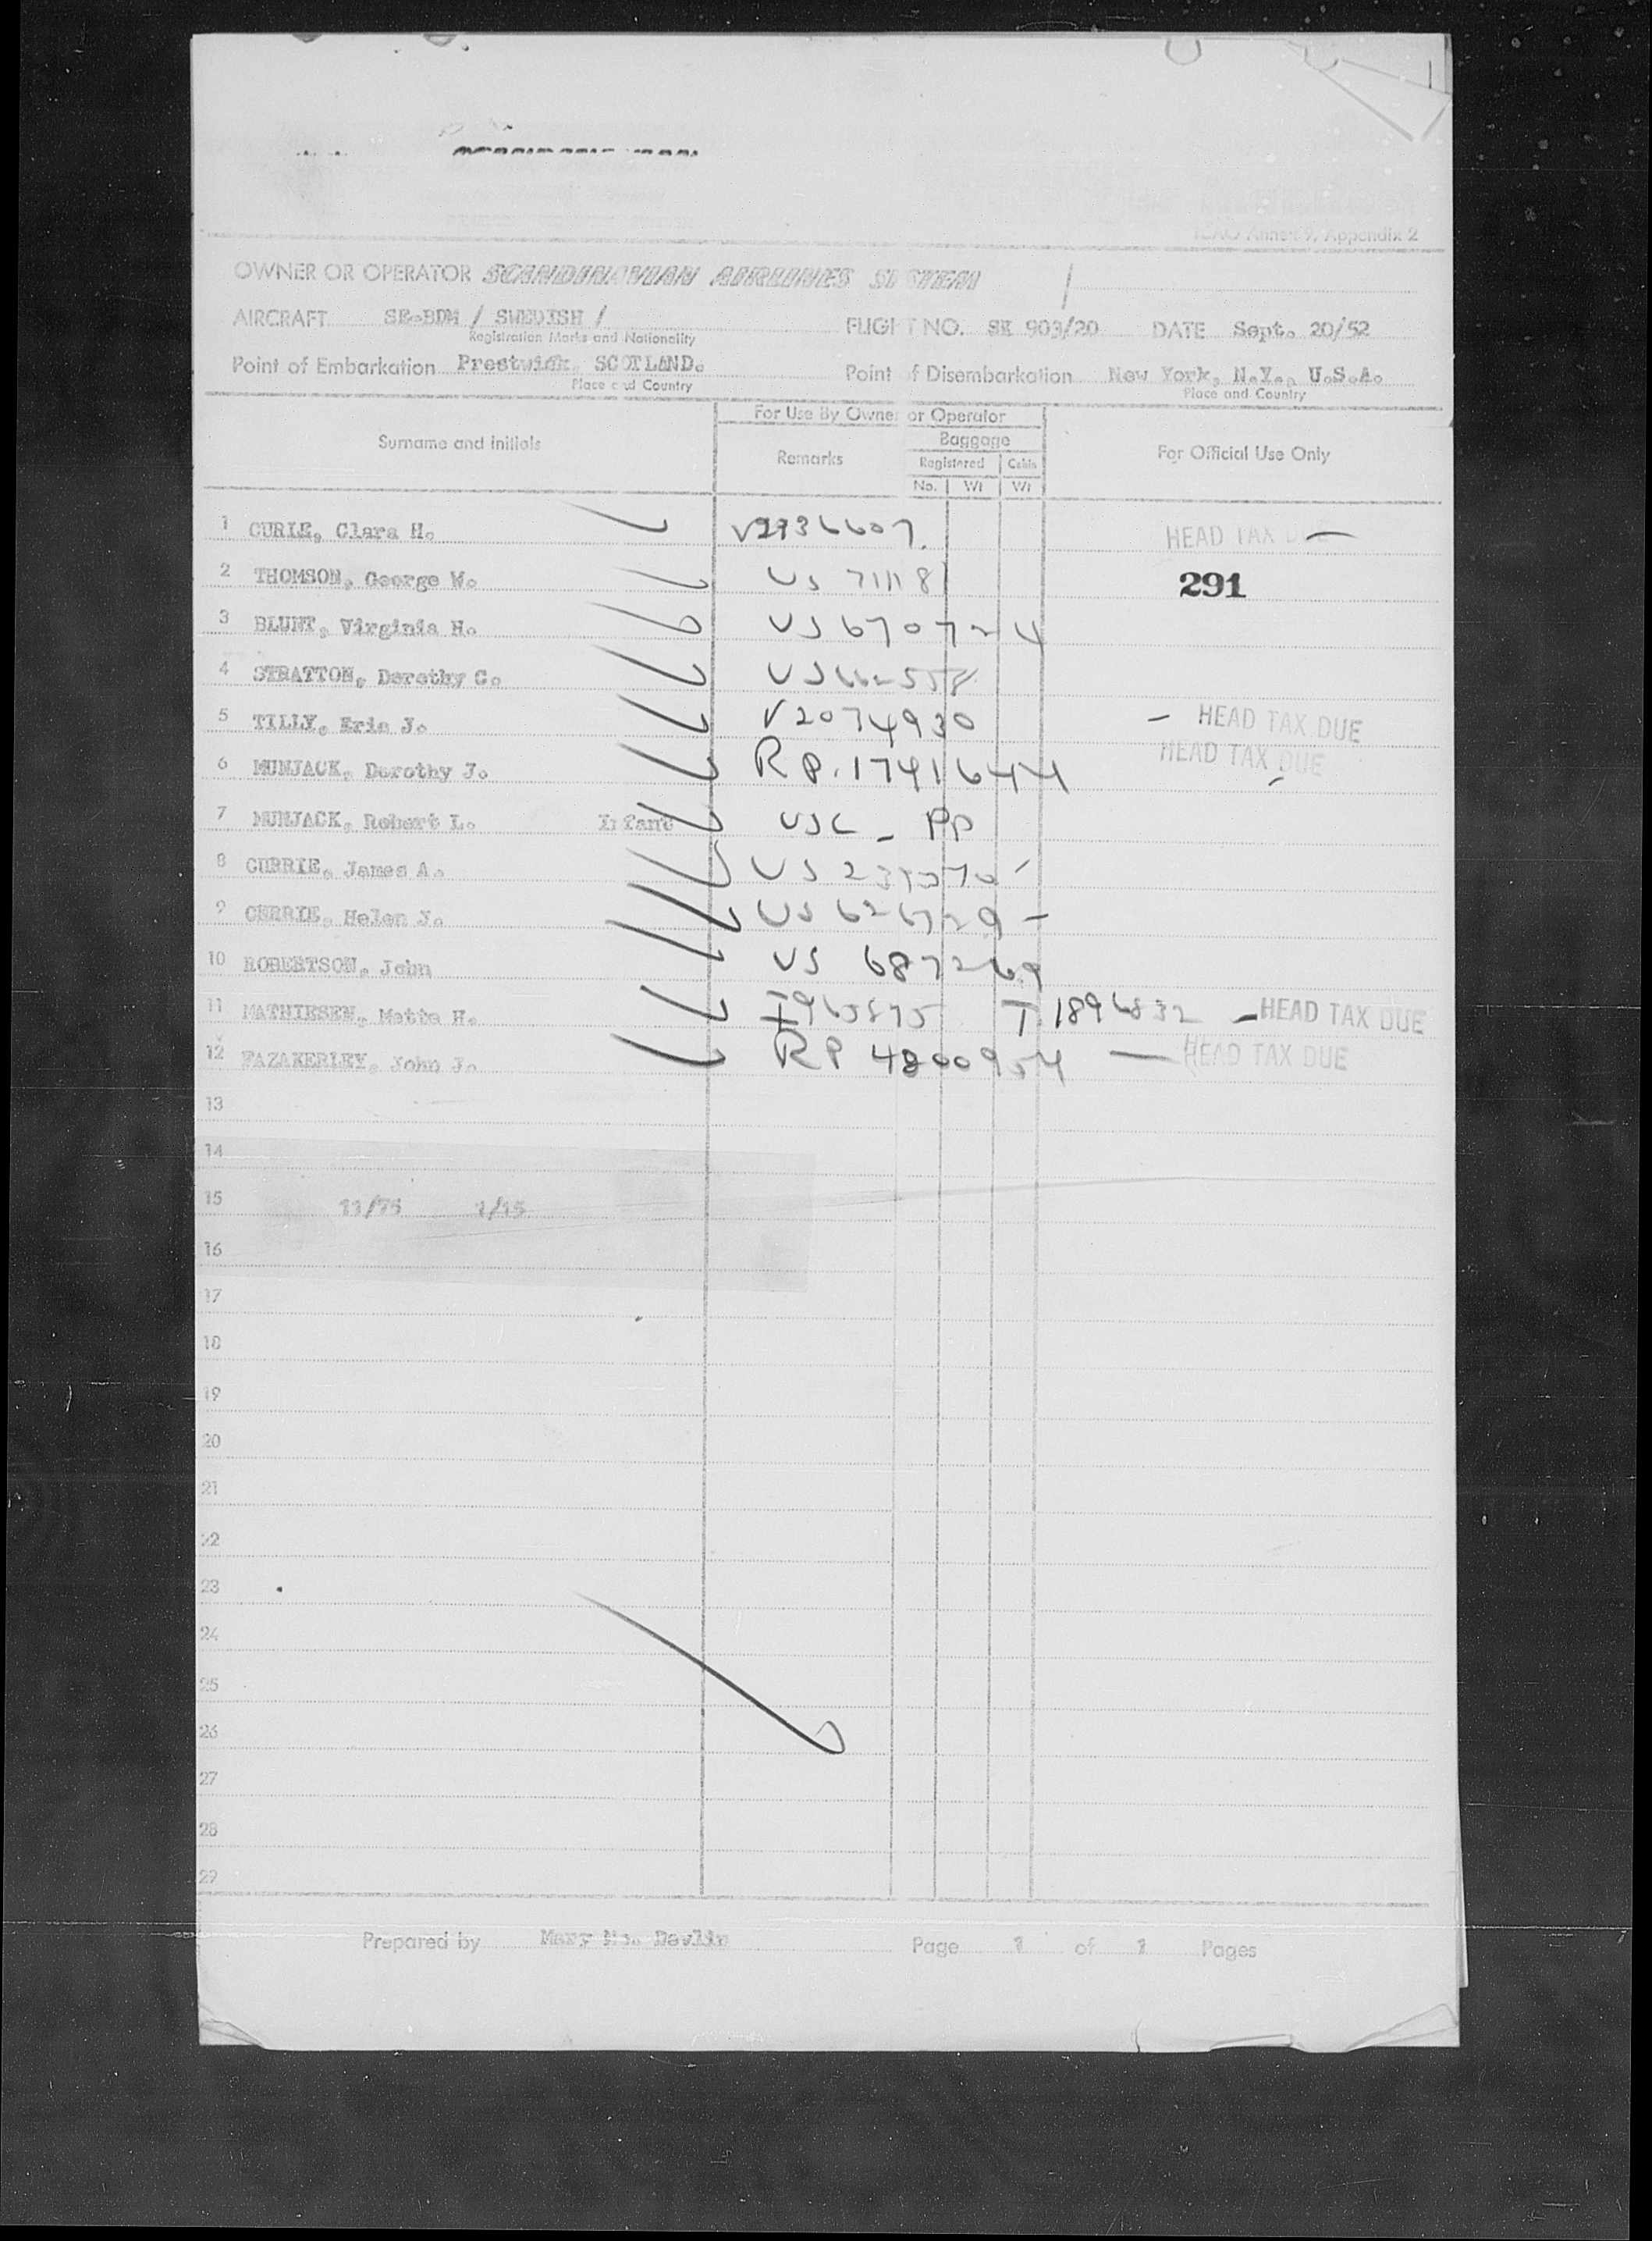 ICAO Annex 9, Appendix 2
OWNER OR OPERATOR SCANDINAVIAN AIRLINES SYSTEM
AIRCRAFT SE-BDM / SWEDISH /
Registration Marks and Nationality
FLIGHT NO. SK 903/20 DATE Sept. 20/52
Point of Embarkation Prestwick, SCOTLAND.
Place and Country
Point of Disembarkation New York, N.Y., U.S.A.
Place and Country
For Use By Owner or Operator
Surname and initials
Remarks
Baggage
Registered Cabin
No. Wt Wt
For Official Use Only
1 CURLE, Clara H. V2936607. HEAD TAX DUE
2 THOMSON, George W. US 71118 291
3 BLUNT, Virginia H. US 670724
4 STRATTON, Dorothy C.
5 TILLY, Eric J. V2074930 HEAD TAX DUE
6 MUNJACK, Dorothy J. RP. 1741644 HEAD TAX DUE
7 MUNJACK, Robert L. Infant USC - PP
8 CURRIE, James A. US
9 CURRIE, Helen J. US 626729 -
10 ROBERTSON, John US 687269
11 MATHIESEN, Mette H. T 1896832 - HEAD TAX DUE
12 FAZAKERLEY, John J. RP 4800954 - HEAD TAX DUE
13
14
15 11/75 1/15
16
17
18
19
20
21
22
23
24
25
26
27
28
29
Prepared by Mary Devlin Page 1 of 1 Pages